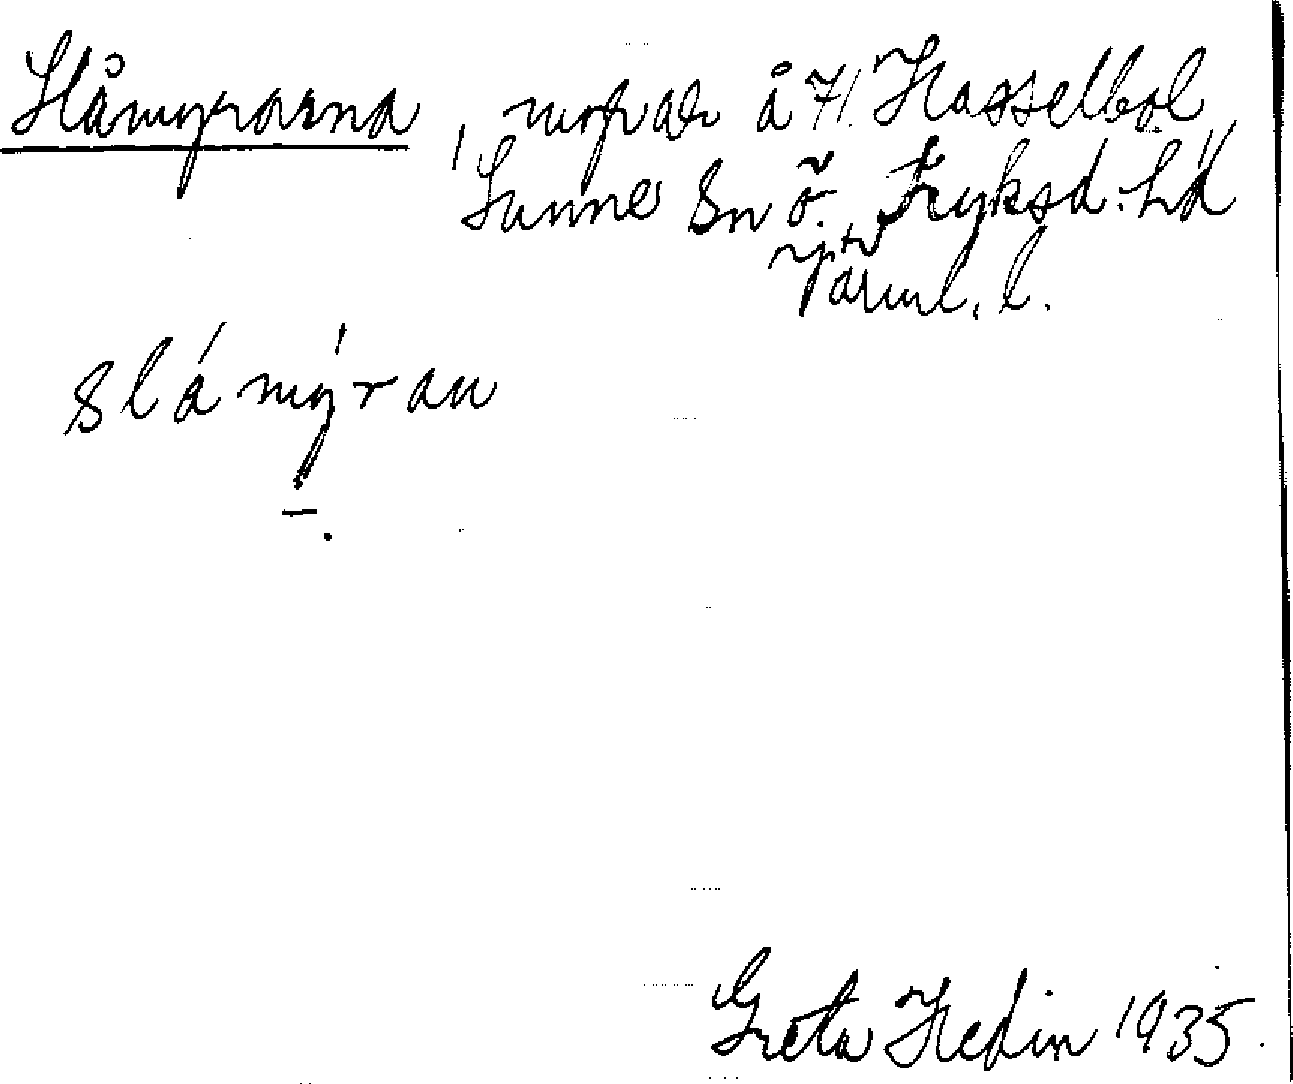 Slåmyrarna, myrar å H. Hasselbol
Sunne Sn Ö. Fryksd. hd
Värml. l.
slámýran
Greta Hedin 1935.